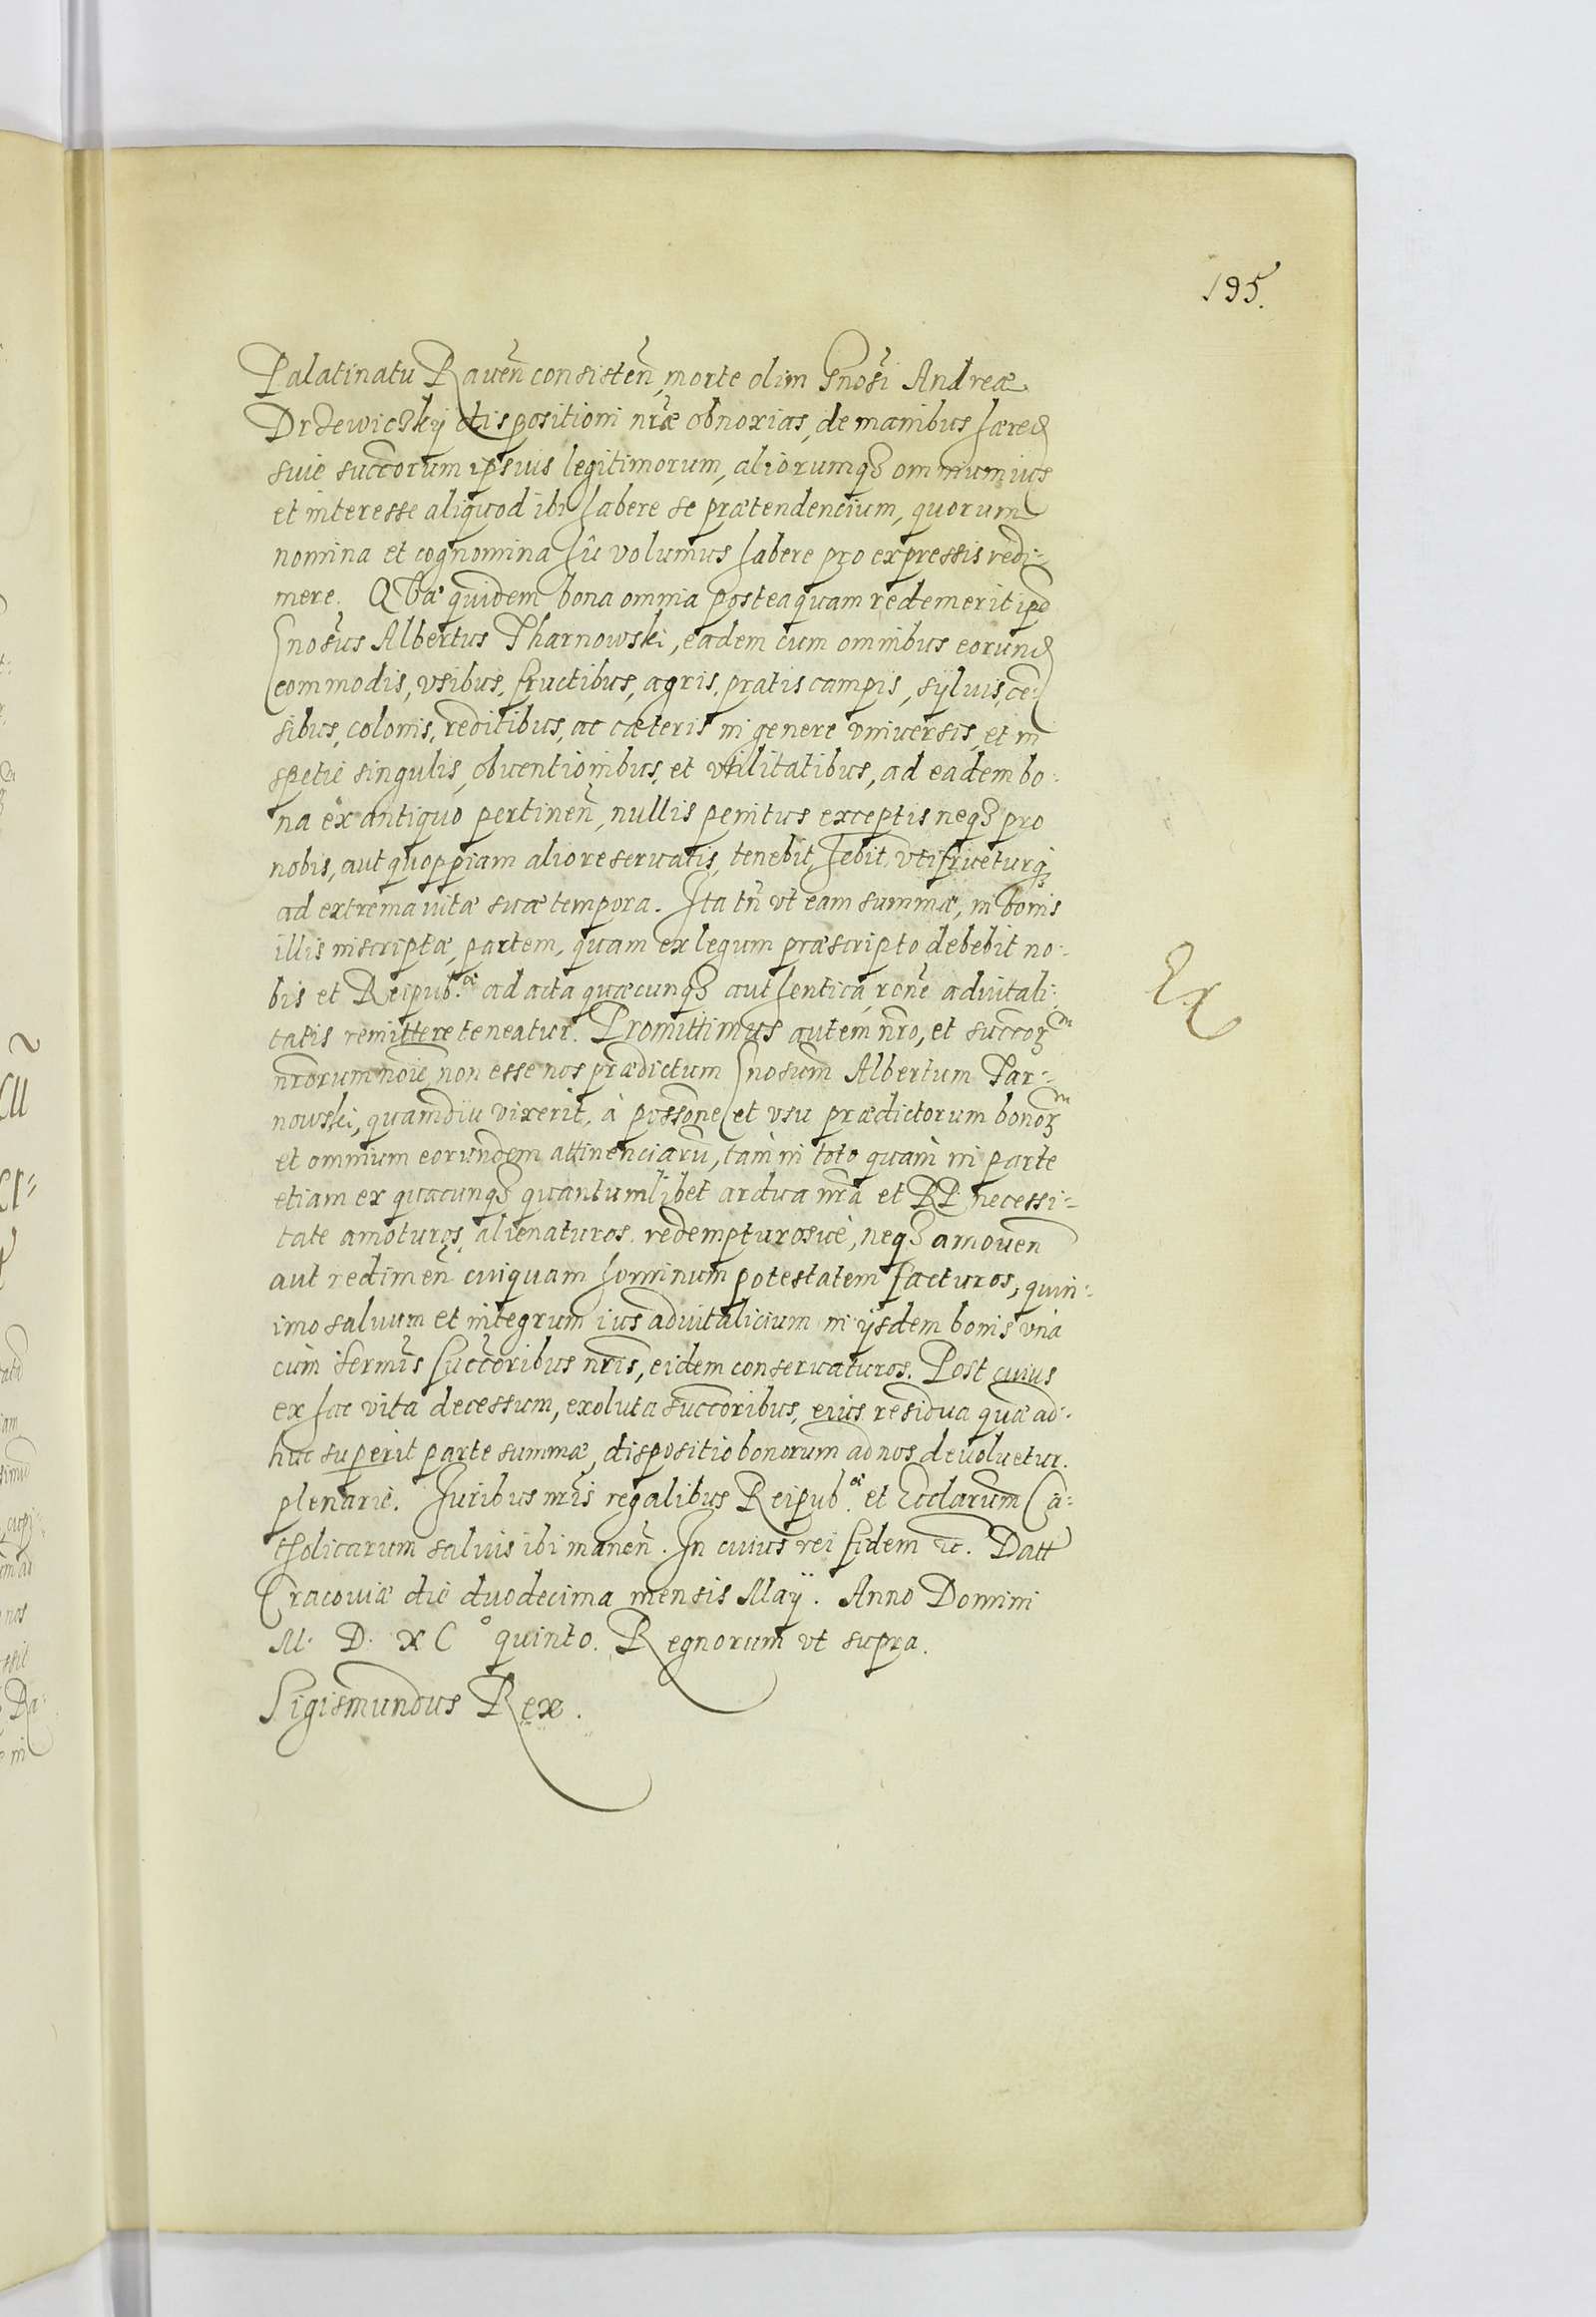 195.
Palatinatu Raueñ consisteñ, morte olim Gnosi Andreæ
Drzewiczkij dispositioni nr̃æ obnoxias, de manibus hæred
siue succorum ipsius legitimorum, aliorumqꝫ omnium ius
et interesse aliquod ibi habere se prætendencium, quorum
nomina et cognomina hic volumus habere pro expressis redi-
mere. Quæ quidem bona omnia posteaquam redemerit ipse
Gnosus Albertus Tharnowski, eadem cum omnibus eorund
commodis, vsibus, fructibus, agris, pratis campis, syluis, cen-
sibus, colonis, reditibus, ac cæteris in genere vniuersis, et in
spetie singulis, obuentionibus, et vtilitatibus, ad eadem bo-
na ex antiquo pertineñ, nullis penitus exceptis neqꝫ pro
nobis, aut quoppiam alio reseruatis, tenebit, hebit, vtifrueturqꝫ
ad extrema vitæ suæ tempora. Ita tñ vt eam summæ, in bonis
illis inscriptæ, partem, quam ex legum præscripto debebit no-
bis et Reipub.æ ad acta quæcunqꝫ authentica, rõne aduitali-
tatis remittere teneatur. Promittimus autem nr̃o, et succoꝝ
nr̃orum noĩe, non esse nos prædictum Gnosum Albertum Tar-
nowski, quamdiu vixerit, à possone et vsu prædictorum bonoꝝ
et omnium eorundem attinenciarũ, tam in toto quam in parte
etiam ex quacunqꝫ quantumlibet ardua nr̃a et RP. necessi-
tate amoturos, alienaturos, redempturosue, neqꝫ amoueñ
aut redimeñ cuiquam hominum potestatem facturos, quin-
imo saluum et integrum ius aduitalicium in ijsdem bonis vnà
cum Sermis Succoribus nr̃is, eidem conseruaturos. Post cuius
ex hac vita decessum, exoluta succoribus, eius residua quæ ad-
huc superit parte summæ, dispositio bonorum ad nos deuoluetur.
plenarie. Iuribus nr̃is regalibus Reipub.æ et Ecclarum Ca-
tholicarum saluis ibi maneñ. In cuius rei fidem ꝛc. Datt
Cracouiæ die duodecima mensis Maij. Anno Domini
M. D. XC° quinto. Regnorum vt supra.
Sigismundus Rex.
Ex